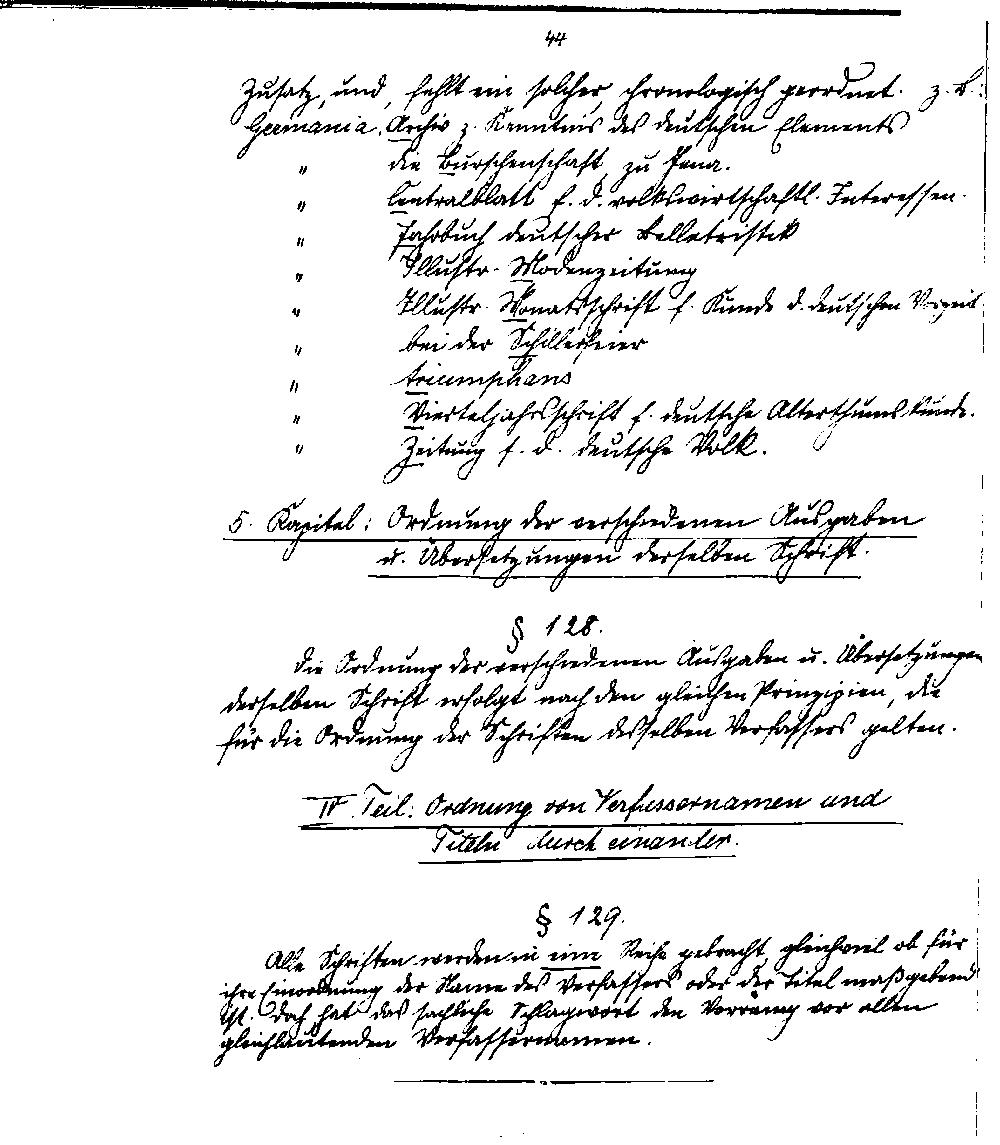 44
Zusatz, und, fehlt ein solcher, chronologisch geordnet. z. B.:
Germania, Archiv z. Kenntnis des deutschen Elements
" die Burschenschaft zu Jena.
" Centralblatt f. d. volkswirtschaftl. Interessen.
" Jahrbuch deutscher Belletristik
" Illustr. Modenzeitung
" Illustr. Monatsschrift f. Kunde d. deutschen Vorzeit
" bei der Schillerfeier
" triumphans
" Vierteljahrsschrift f. deutsche Alterthumskunde.
" Zeitung f. d. deutsche Volk.
5. Kapitel: Ordnung der verschiedenen Ausgaben
u. Übersetzungen derselben Schrift.
§ 128.
Die Ordnung der verschiedenen Ausgaben u. Übersetzungen
derselben Schrift erfolgt nach den gleichen Prinzipien, die
für die Ordnung der Schriften desselben Verfassers gelten.
IV Teil: Ordnung von Verfassernamen und
Titeln durch einander.
§ 129.
Alle Schriften werden in eine Reihe gebracht, gleichviel ob für
ihre Einordnung der Name des Verfassers oder der Titel maßgebend
ist. Doch hat das sachliche Schlagwort den Vorrang vor allen
gleichlautenden Verfassernamen.